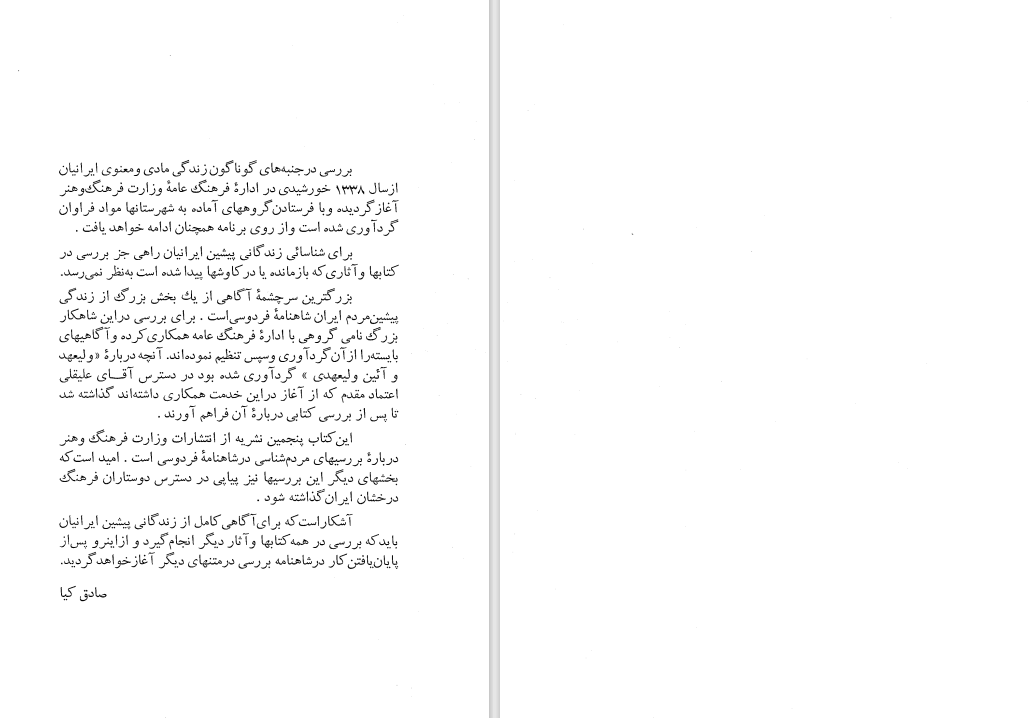 بررسی درجنبه‌های گوناگون زندگی مادی ومعنوی ایرانیان
ازسال ۱۳۳۸ خورشیدی در ادارهٔ فرهنگ عامهٔ وزارت فرهنگ‌وهنر
آغازگردیده وبا فرستادن‌گروههای آماده به شهرستانها مواد فراوان
گردآوری شده است واز روی برنامه همچنان ادامه خواهد یافت .
برای شناسائی زندگانی پیشین ایرانیان راهی جز بررسی در
کتابها وآثاری‌که بازمانده یا درکاوشها پیدا شده است به‌نظر نمی‌رسد.
بزرگترین سرچشمهٔ آگاهی از یك بخش بزرگ از زندگی
پیشین‌مردم ایران شاهنامهٔ فردوسی‌است . برای بررسی دراین شاهکار
بزرگ نامی گروهی با ادارهٔ فرهنگ عامه همکاری‌کرده وآگاهیهای
بایسته‌را ازآن‌گردآوری وسپس تنظیم نموده‌اند. آنچه دربارهٔ «ولیعهد
و آئین ولیعهدی » گردآوری شده بود در دسترس آقـــای علیقلی
اعتماد مقدم که از آغاز دراین خدمت همکاری داشته‌اند گذاشته شد
تا پس از بررسی کتابی دربارهٔ آن فراهم آورند .
این‌کتاب پنجمین نشریه از انتشارات وزارت فرهنگ وهنر
دربارهٔ بررسیهای مردم‌شناسی درشاهنامهٔ فردوسی است . امید است‌که
بخشهای دیگر این بررسیها نیز پیاپی در دسترس دوستاران فرهنگ
درخشان ایران‌گذاشته شود .
آشکاراست‌که برای‌آگاهی‌کامل از زندگانی پیشین ایرانیان
بایدکه بررسی در همه‌کتابها وآثار دیگر انجام‌گیرد و ازاینرو پس‌از
پایان‌یافتن‌کار درشاهنامه بررسی درمتنهای دیگر آغازخواهدگردید.
صادق کیا